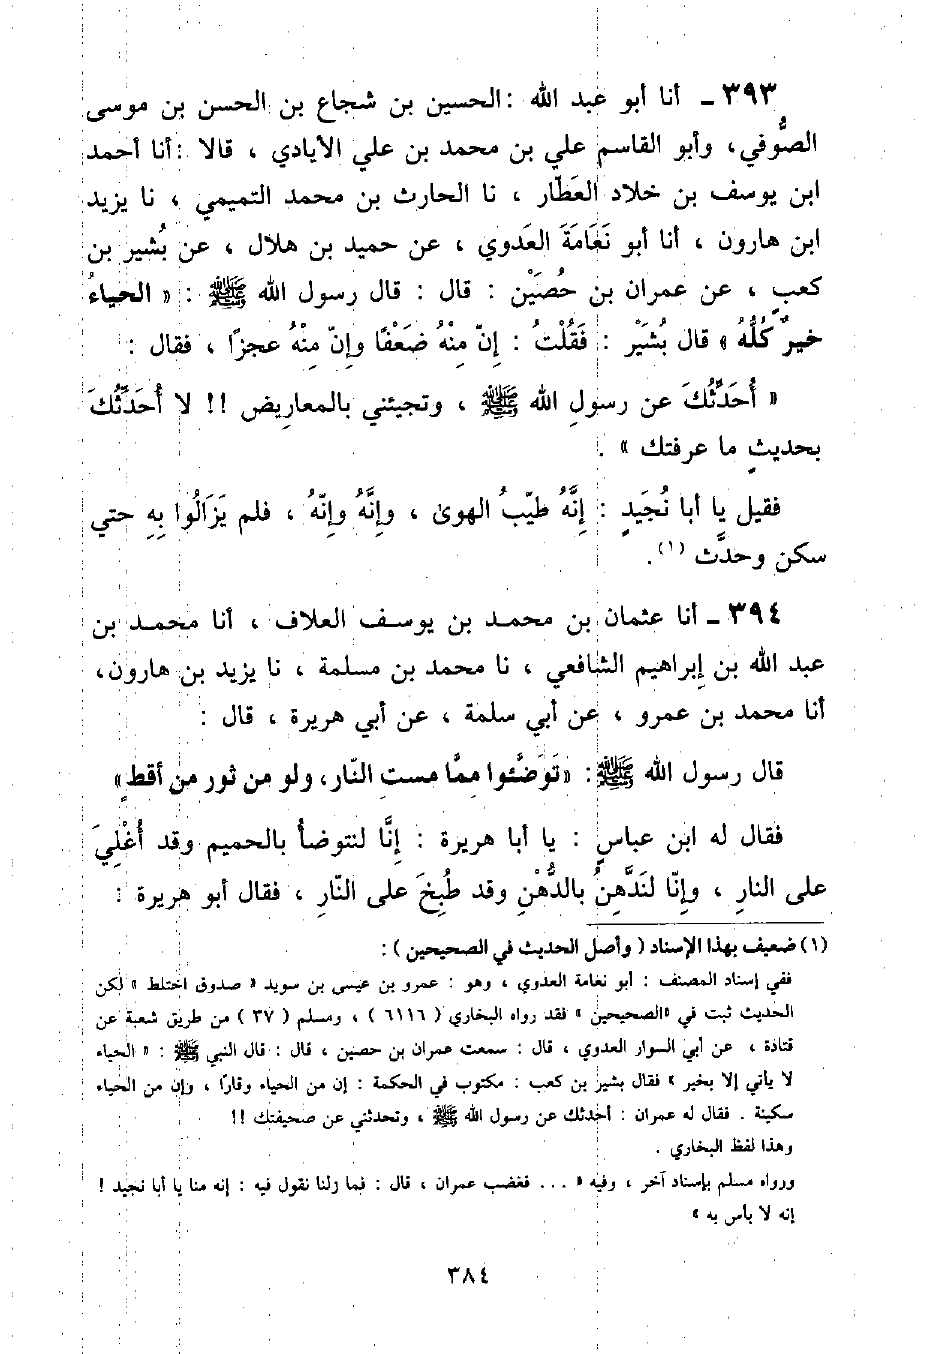 ٣٩٣ ـ أنا أبو عبد الله : الحسين بن شجاع بن الحسن بن موسى
الصُّوفي، وأبو القاسم علي بن محمد بن علي الأيادي ، قالا : أنا أحمد
ابن يوسف بن خلاد العَطّار ، نا الحارث بن محمد التميمي ، نا يزيد
ابن هارون ، أنا أبو نَعَامَةَ العَدوي ، عن حميد بن هلال ، عن بُشير بن
كعبٍ ، عن عمران بن حُصَيْن : قال : قال رسول الله ﷺ : « الحياءُ
خيرٌ كُلُّهُ » قال بُشَيْر : فَقُلْتُ : إِنّ مِنْهُ ضَعْفًا وإِنّ مِنْهُ عجزًا ، فقال :
« أُحَدِّثُكَ عن رسولِ الله ﷺ ، وتجيئني بالمعاريض !! لا أُحَدِّثُكَ
بحديثٍ ما عرفتك » .
فقيل يا أبا نُجَيدٍ : إِنَّهُ طيّبُ الهوىٰ ، وإِنَّهُ وإِنّهُ ، فلم يَزَالُوا بِهِ حتي
سكن وحدَّث (١).
٣٩٤ ـ أنا عثمان بن محمد بن يوسف العلاف ، أنا محمد بن
عبد الله بن إبراهيم الشافعي ، نا محمد بن مسلمة ، نا يزيد بن هارون،
أنا محمد بن عمرو ، عن أبي سلمة ، عن أبي هريرة ، قال :
قال رسول الله ﷺ: «تَوَضَّئوا مِمَّا مستِ النَّار، ولو من ثور من أقطٍ»
فقال له ابن عباسٍ : يا أبا هريرة : إِنَّا لنتوضأُ بالحميم وقد أُغْلِيَ
على النارِ ، وإِنّا لنَدَّهِنُ بالدُّهْنِ وقد طُبِخَ على النّارِ ، فقال أبو هريرة :
(١) ضعيف بهذا الإسناد ( وأصل الحديث في الصحيحين ) :
ففي إسناد المصنف : أبو نعامة العدوي ، وهو : عمرو بن عيسى بن سويد « صدوق اختلط » لكن
الحديث ثبت في «الصحيحين » فقد رواه البخاري ( ٦١١٦ ) ، ومسلم ( ٣٧ ) من طريق شعبة عن
قتادة ، عن أبي السوار العدوي ، قال : سمعت عمران بن حصين ، قال : قال النبي ﷺ : « الحياء
لا يأتي إلا بخير » فقال بشير بن كعب : مكتوب في الحكمة : إن من الحياء وقارًا ، وإن من الحياء
سكينة . فقال له عمران : أحدثك عن رسول الله ﷺ ، وتحدثني عن صحيفتك !!
وهذا لفظ البخاري .
ورواه مسلم بإسناد آخر ، وفيه « ... فغضب عمران ، قال : فما زلنا نقول فيه : إنه منا يا أبا نجيد !
إنه لا بأس به »
٣٨٤